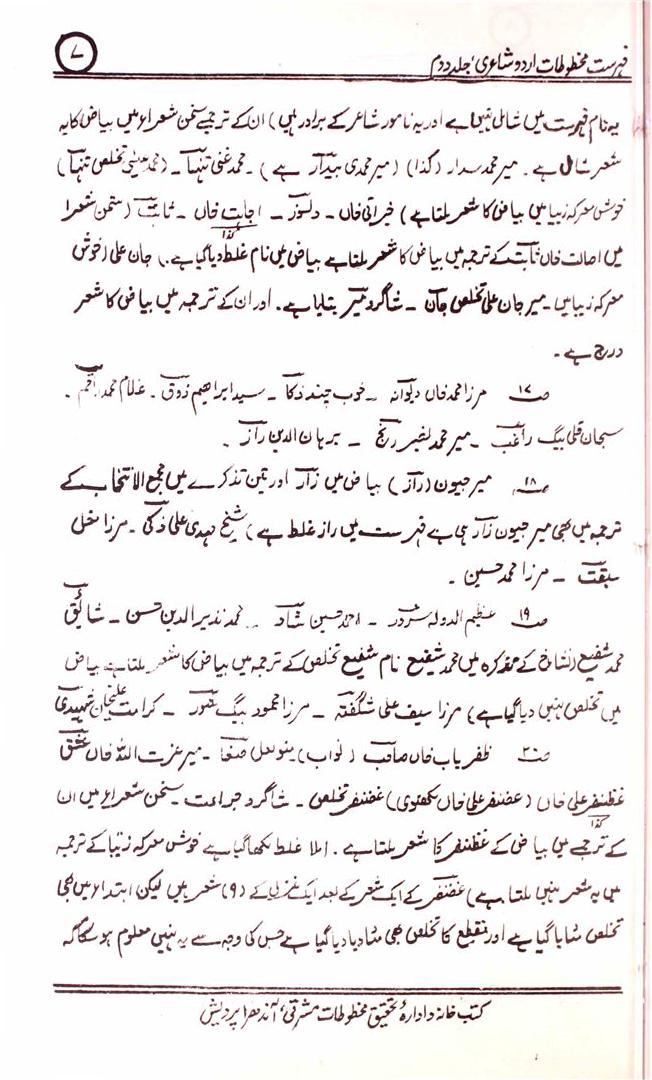 فہرست مخطوطات اردو شاعری، جلد دوم
۷
یہ نام فہرست میں شامل نہیں ہے اور یہ نامور شاعر کے برادر ہیں) ان کے ترجمے سخن شعراء میں بیاض کا یہ
شعر شامل ہے۔ میر محمد سدار (کذا) (میر محمدی بیدار ہے)۔ محمد غنی تنہا۔ (محمد عیسیٰ تخلص تنہا)
خوش معرکہ زیبا میں بیاض کا شعر ملتا ہے) خیراتی خاں۔ دلسوز۔ اجابت خاں کذا۔ ثابت (سخن شعرا
میں اصالت خاں ثابت کے ترجمہ میں بیاض کا شعر ملتا ہے بیاض میں نام غلط دیا گیا ہے۔) جان علی (خوش
معرکہ زیبا میں۔ میر جان علی تخلص جان۔ شاگرد میر بتایا ہے۔ اور ان کے ترجمہ میں بیاض کا شعر
درج ہے۔
صـ ۱۷ مرزا محمد خاں دیوانہ۔ خوب چند ذکا۔ سید ابراہیم ذوق۔ غلام محمد راقم۔
سبحان قلی بیگ راغب۔ میر محمد نصیر رنج۔ برہان الدین راز۔
صـ ۱۸ میر جیون (راز) بیاض میں زآر اور تین تذکرے میں مجمع الانتخاب کے
ترجمہ میں بھی میر جیون زآر ہی ہے فہرست میں راز غلط ہے) شیخ مہدی علی ذکی۔ مرزا مغل
سبقت۔ مرزا محمد حسین۔
صـ ۱۹ عظیم الدولہ سرور۔ احمد حسین شاد۔ محمد نذیر الدین حسن۔ شائق
محمد شفیع (نساخ کے تذکرہ میں محمد شفیع نام شفیع تخلص کے ترجمہ میں بیاض کا شعر ملتا ہے بیاض
میں تخلص نہیں دیا گیا ہے) مرزا سیف علی شگفتہ۔ مرزا محمود بیگ شور۔ کرامت علیخان شہیدی
صـ ۲۰ ظفریاب خاں صاحب (نواب) ینولعل صفا۔ میر عزت اللہ خاں عشق
غظنفر علی خاں کذا (غضنفر علی خاں لکھنوی) غضنفر تخلص۔ شاگرد جراءت۔ سخن شعراء میں ان
کے ترجمے میں بیاض کے غظنفر کا شعر ملتا ہے۔ املا غلط لکھا گیا ہے خوش معرکہ زیبا کے ترجمہ
میں یہ شعر نہیں ملتا ہے) غضنفر کے ایک شعر کے بعد ایک غزل کے (۹) شعر ہیں لیکن ابتداء میں بھی
تخلص مٹایا گیا ہے اور مقطع کا تخلص بھی مٹا دیا گیا ہے جس کی وجہ سے یہ نہیں معلوم ہو سکا کہ
کتب خانہ و ادارۂ تحقیق مخطوطات مشرقی، آندھرا پردیش